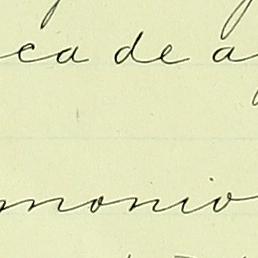 ca de a
monio